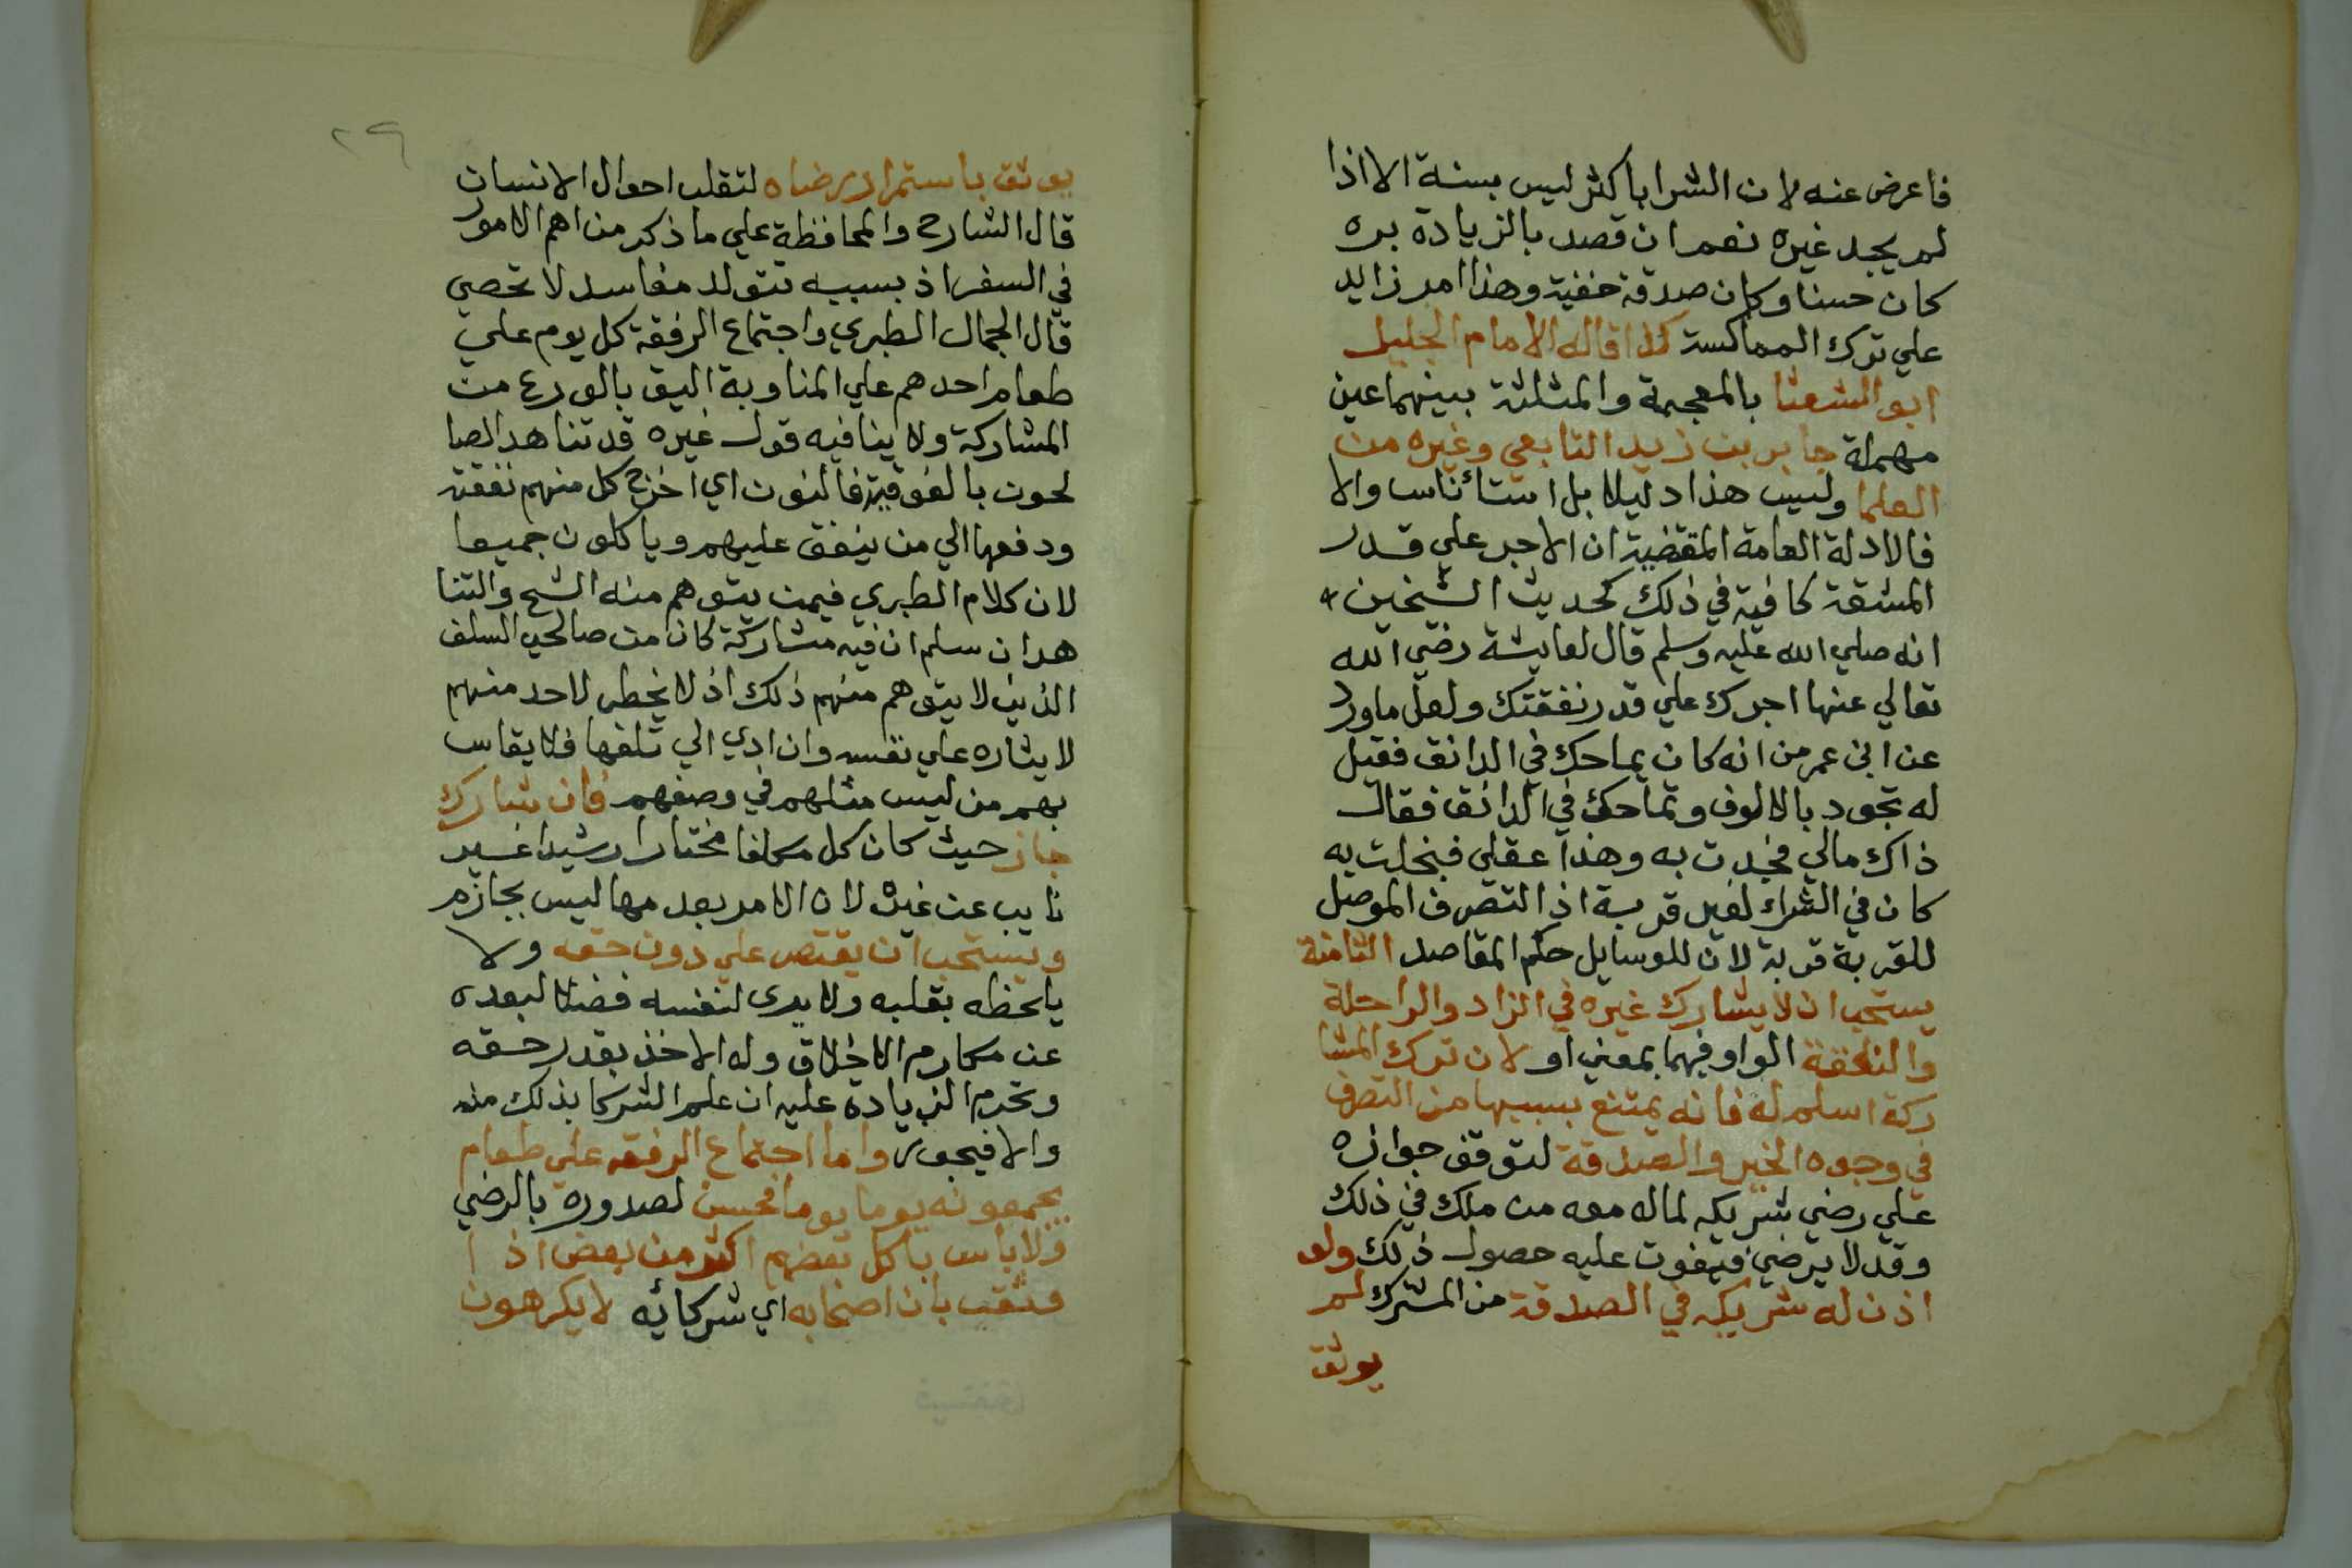 فاعرض عنه لان الشرا باكثر ليس بسنة الا اذا
لم يجد غيره نعم ان قصد بالزيادة بره
كان حسنا وكان صدقة خفية وهذا امر زايد
علي ترك المماكسة كذا قاله الامام الجليل
ابو الشعثا بالمعجمة والمثلثة بينهما عين
مهملة جابر بن زيد التابعي وغيره من
العلما وليس هذا دليلا بل استئناس والا
فالادلة العامة المقضية ان الاجر علي قدر
المشقة كافية في ذلك كحديث الشيخين
انه صلي الله عليه وسلم قال لعايشة رضي الله
تعالي عنها اجرك علي قدر نفقتك ولعل ما ورد
عن ابن عمر من انه كان يماحك في الدانق فقيل
له تجود بالالوف وتماحك في الدانق فقال
ذاك مالي فجدت به وهذا عقلي فبخلت به
كان في الشراء لغير قربة اذ التصرف الموصل
للقربة قربة لان للوسايل حكم المقاصد الثامنة
يستحب ان لا يشارك غيره في الزاد والراحلة
والنفقة الواو فيهما بمعني او لان ترك المشا
ركة اسلم له فانه يمتنع بسببها من التصرف
في وجوه الخير والصدقة لتوقف جوازه
علي رضي شريكه لما له معه من ملك في ذلك
وقد لا يرضي فيفوت عليه حصول ذلك ولو
اذن له شريكه في الصدقة من المشترك لم
يوثق
٢٩
يوثق باستمرار رضاه لتقلب احوال الانسان
قال الشارح والمحافظة علي ما ذكر من اهم الامور
في السفر اذ بسببه تتولد مفاسد لا تحصي
قال الجمال الطبري واجتماع الرفقة كل يوم علي
طعام احدهم علي المناوبة اليق بالورع من
المشاركة ولا ينافيه قول غيره قد تناهد الصا
لحون بالفوقية فالنون اي اخرج كل منهم نفقته
ودفعها الي من ينفق عليهم وياكلون جميعا
لان كلام الطبري فيمن يتوهم منه الشح والتنا
هد ان سلم ان فيه مشاركة كان من صالحي السلف
الذين لا يتوهم منهم ذلك اذ لا يخطر لاحد منهم
لايثاره علي نفسه وان ادي الي تلفها فلا يقاس
بهم من ليس مثلهم في وصفهم فان شارك
جاز حيث كان كل مكلفا مختارا رشيدا غير
نايب عن غيره لان الامر بعد مما ليس بجازم
ويستحب ان يقتصر علي دون حقه ولا
يلحظه بقلبه ولا يرى لنفسه فضلا لبعده
عن مكارم الاخلاق وله الاخذ بقدر حقه
وتحرم الزيادة عليه ان علم الشركا بذلك منه
والا فيجوز واما اجتماع الرفقه علي طعام
يجمعونه يوما يوما فحسن لصدوره بالرضي
ولا باس باكل بعضهم اكثر من بعض اذا
وثقت بان اصحابه اي شركائه لا يكرهون